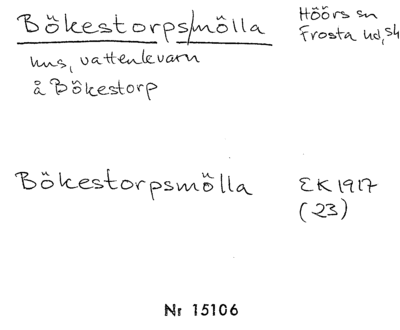 Bökestorps/mölla
Höörs sn
Frosta hd, Sk
hus, vattenkvarn
å Bökestorp
Bökestorpsmölla
EK 1917
(23)
Nr 15106